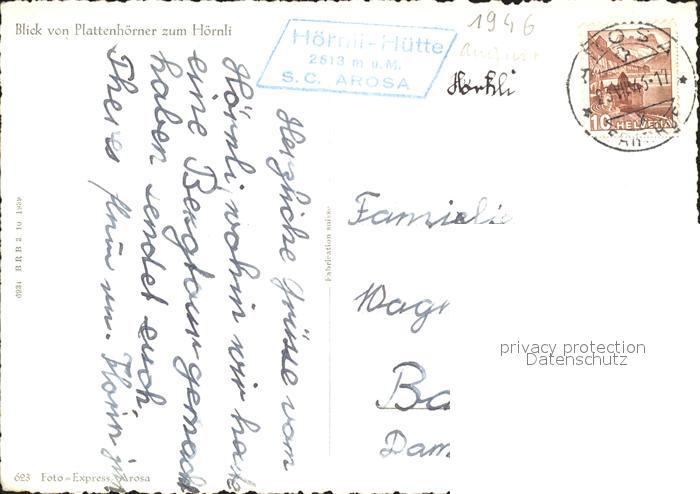 Blick von Plattenhörner zum Hörnli
Hörnli-Hütte
2513 m ü.M.
S.C. AROSA
1946
August
Hörnli
10 HELVETIA
Herzliche Grüsse vom
Hörnli, wohin wir heute
eine Bergtour gemacht
haben sendet euch
Theres
Fabrication suisse
Familie
Wagn
Ba
Dam
privacy protection
Datenschutz
6934 BRB 3. 10 1939
623 Foto-Express, Arosa